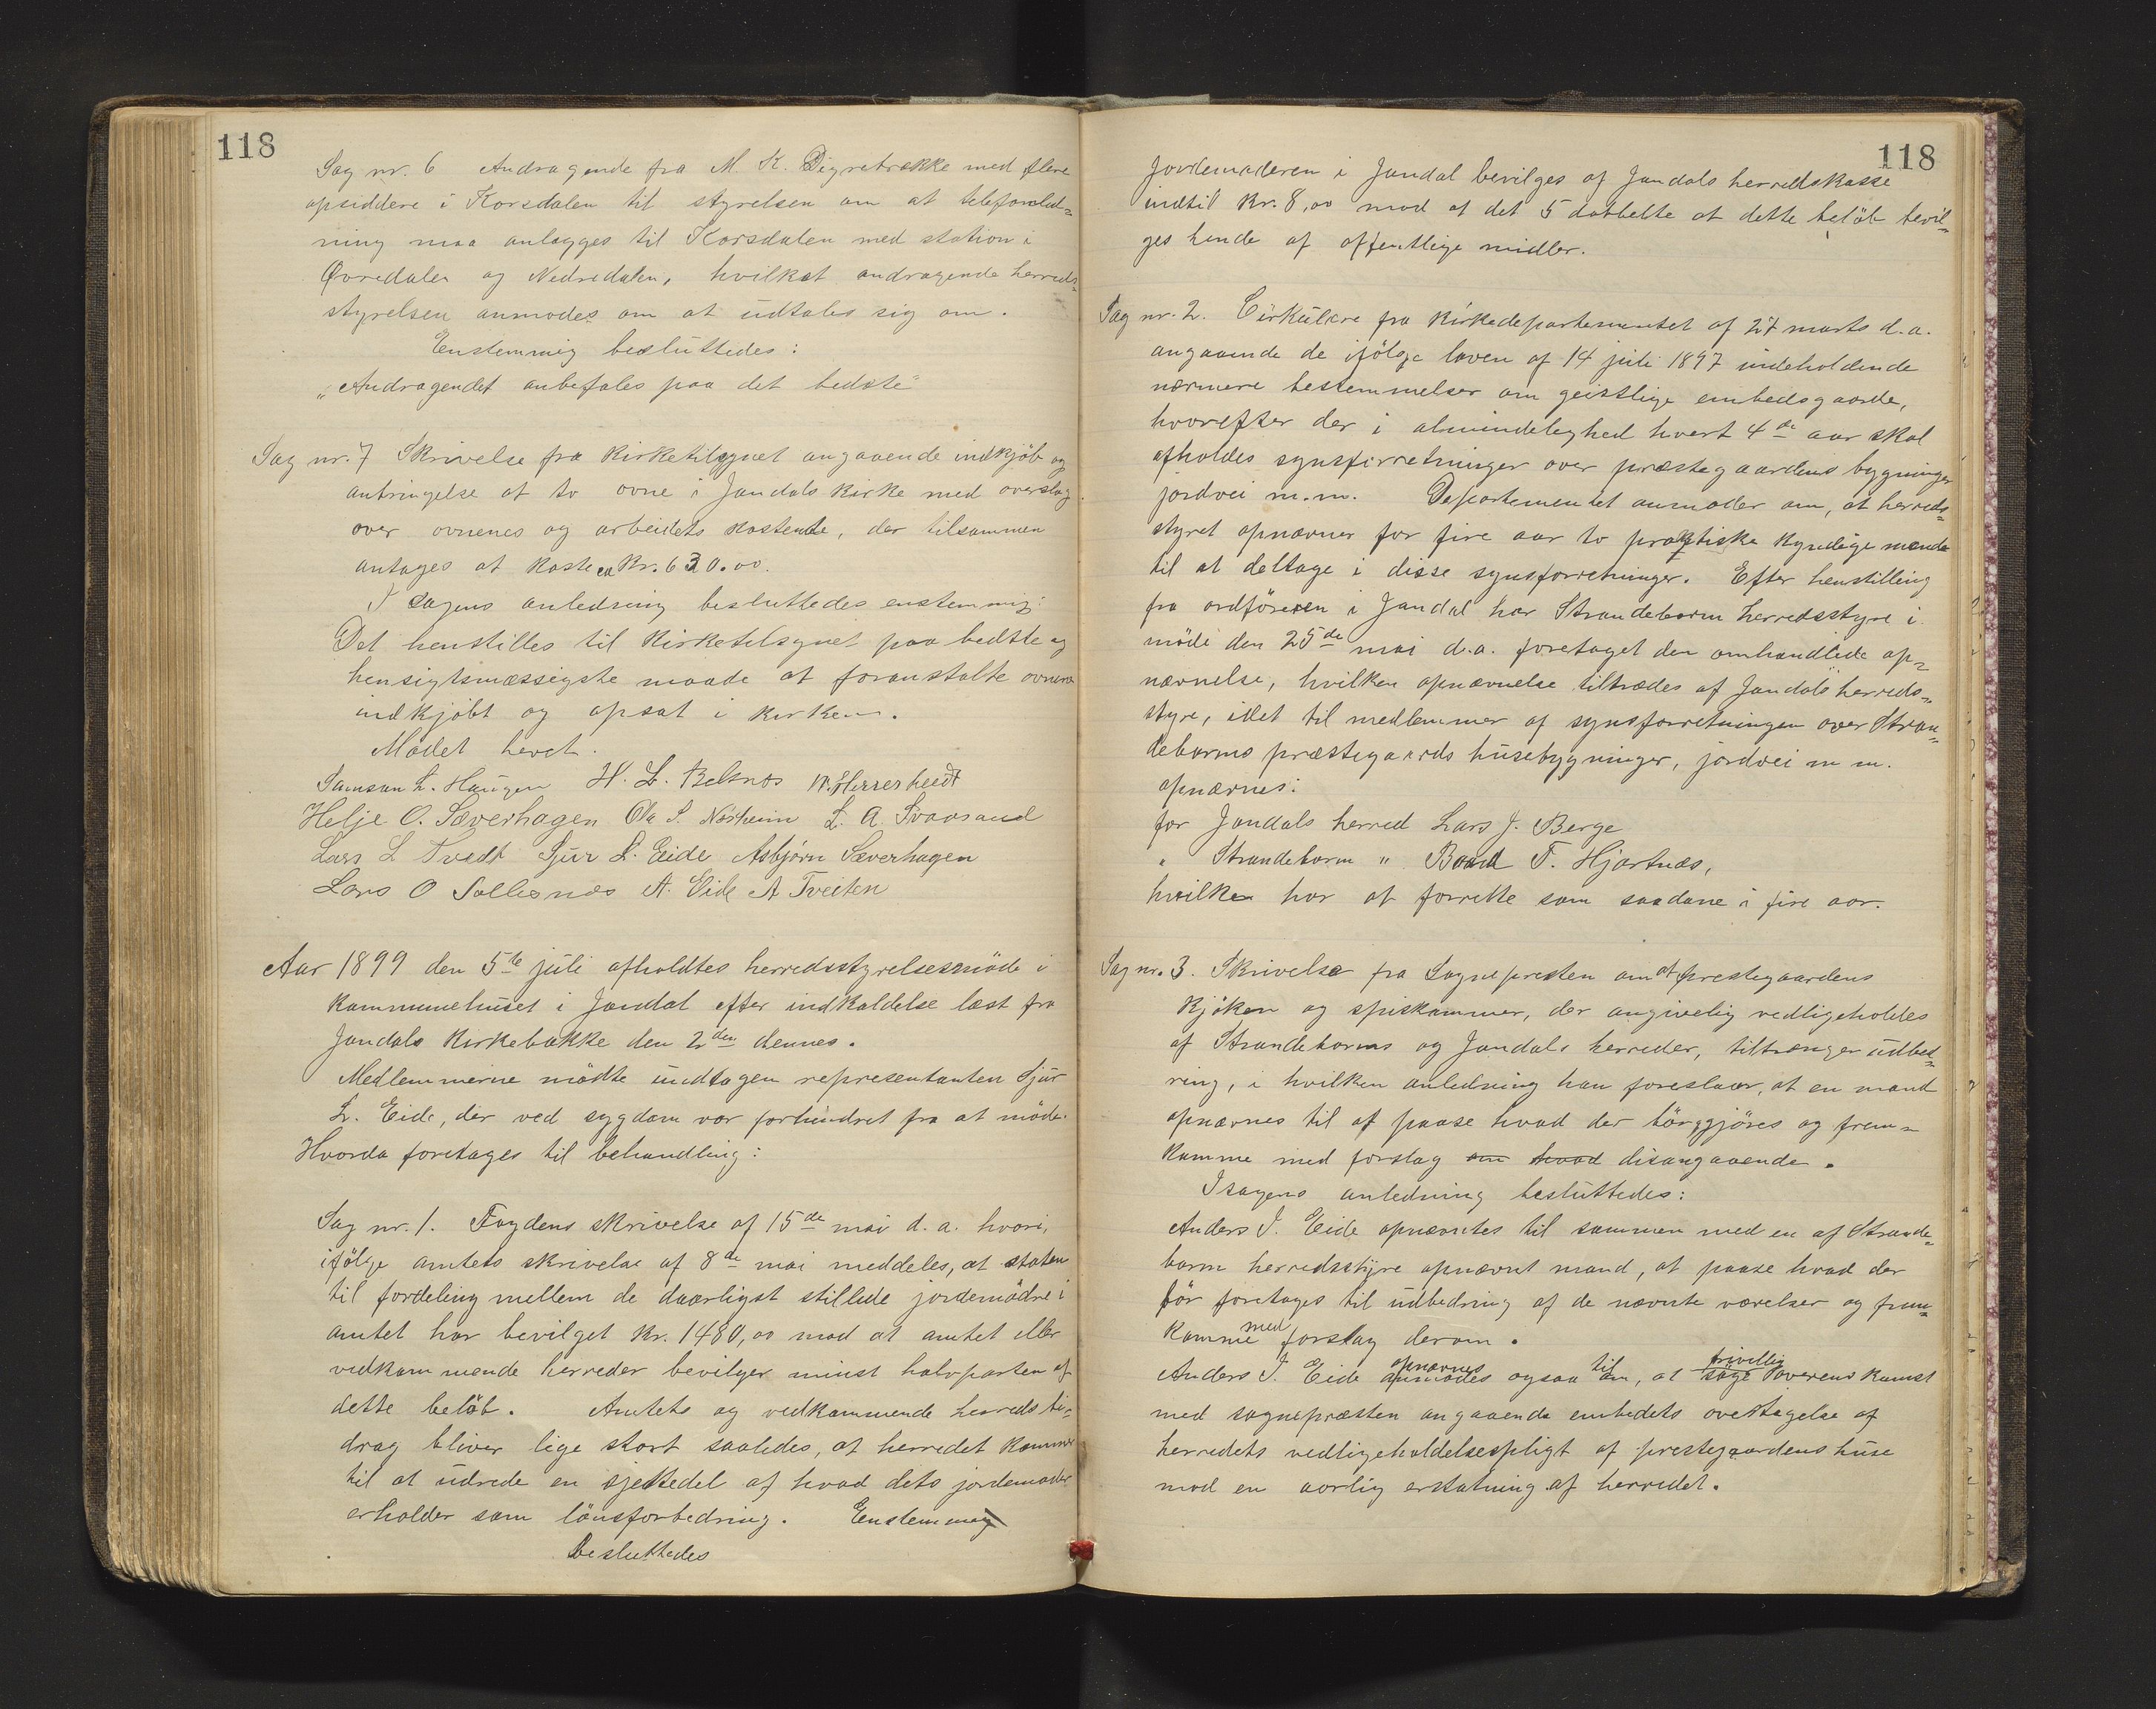 118
Sag nr. 6 Andragende fra M. K. Digretrække med flere
opsiddere i Korsdalen til styrelsen om at telefonled-
ning maa anlægges til Korsdalen med station i
Øvredalen og Nedredalen, hvilket andragende herreds-
styrelsen anmodes om at udtales sig om.
Enstemmig besluttedes:
"Andragendet anbefales paa det bedste"
Sag nr. 7 Skrivelse fra Kirketilsynet angaaende indkjöb og
anbringelse af to ovne i Jondals kirke med overslag
over ovnenes og arbeidets kostende, der tilsammen
antages at koste ca Kr. 630.00.
I sagens anledning besluttedes enstemmig:
Det henstilles til Kirketilsynet paa bedste og
hensigtsmæssigste maade at foranstalte ovnene
indkjöbt og opsat i kirken.
Mödet hevet.
Samson L. Haugen H. L. Belsnes
Helje O. Sæverhagen Ola S. Norheim L. A. Svaasand
Lars L Tvedt Sjur L. Eide Asbjørn Sæverhagen
Lars O Sollesnes A. Eide A Tveiten
Aar 1899 den 5te juli afholdtes herredsstyrelsesmöde i
kommunehuset i Jondal efter indkaldelse læst fra
Jondals kirkebakke den 2den dennes.
Medlemmerne mödte undtagen representanten Sjur
L. Eide, der ved sygdom var forhindret fra at möde.
Hvorda foretages til behandling:
Sag nr. 1. Fogdens skrivelse af 15de mai d. a. hvori,
ifölge amtets skrivelse af 8de mai meddeles, at staten
til fordeling mellem de daarligst stillede jordemödre i
amtet har bevilget Kr. 1480,00 mod at amtet eller
vedkommende herreder bevilger minst halvparten af
dette belöb. Amtets og vedkommende herreds bi-
drag bliver lige stort saaledes, at herredet kommer
til at udrede en sjettedel af hvad dets jordemoder
erholder som lönsforbedring. Enstemmig
besluttedes
118
Jordemoderen i Jondal bevilges af Jondals herredskasse
indtil Kr. 8,00 mod at det 5 dobbelte af dette belöb bevil-
ges hende af offentlige midler.
Sag nr. 2. Cirkulære fra Kirkedepartementet af 27 marts d. a.
angaaende de ifölge loven af 14 juli 1897 indeholdende
nærmere bestemmelser om geistlige embedsgaarde,
hvorefter der i almindelighed hvert 4de aar skal
afholdes synsforretninger over præstegaardens bygninger
jordvei m.m. Departementet anmoder om, at herreds-
styret opnævner for fire aar to praktiske kyndige mænd
til at deltage i disse synsforretninger. Efter henstilling
fra ordföreren i Jondal har Strandebarm herredsstyre i
möde den 25de mai d.a. foretaget den omhandlede op-
nævnelse, hvilken opnævnelse tiltrædes af Jondals herreds-
styre, idet til medlemmer af synsforretningen over Stran-
debarms præstegaards husebygninger, jordvei m m.
opnævnes:
for Jondals herred Lars J. Berge
" Strandebarm " Baard T. Hjartnæs,
hvilke har at forrette som saadane i fire aar.
Sag nr. 3. Skrivelse fra Sognepresten om at prestegaardens
kjöken og spiskammer, der angivelig vedligeholdes
af Strandebarms og Jondals herreder, tiltrænger udbed-
ring, i hvilken anledning han foreslaar, at en mand
opnævnes til at paase hvad der bör gjöres og frem-
komme med forslag om hvad disangaaende.
I sagens anledning besluttedes:
Anders I. Eide opnævntes til sammen med en af Strande-
barm herredsstyre opnævnt mand, at paase hvad der
bör foretages til udbedring af de nævnte værelser og frem-
komme med forslag derom.
Anders I. Eide opnævnes anmodes ogsaa til om, at söge frivillig overenskomst
med sognepræsten angaaende embedets overtagelse af
herredets vedligeholdelsespligt af prestegaardens huse
mod en aarlig erstatning af herredet.